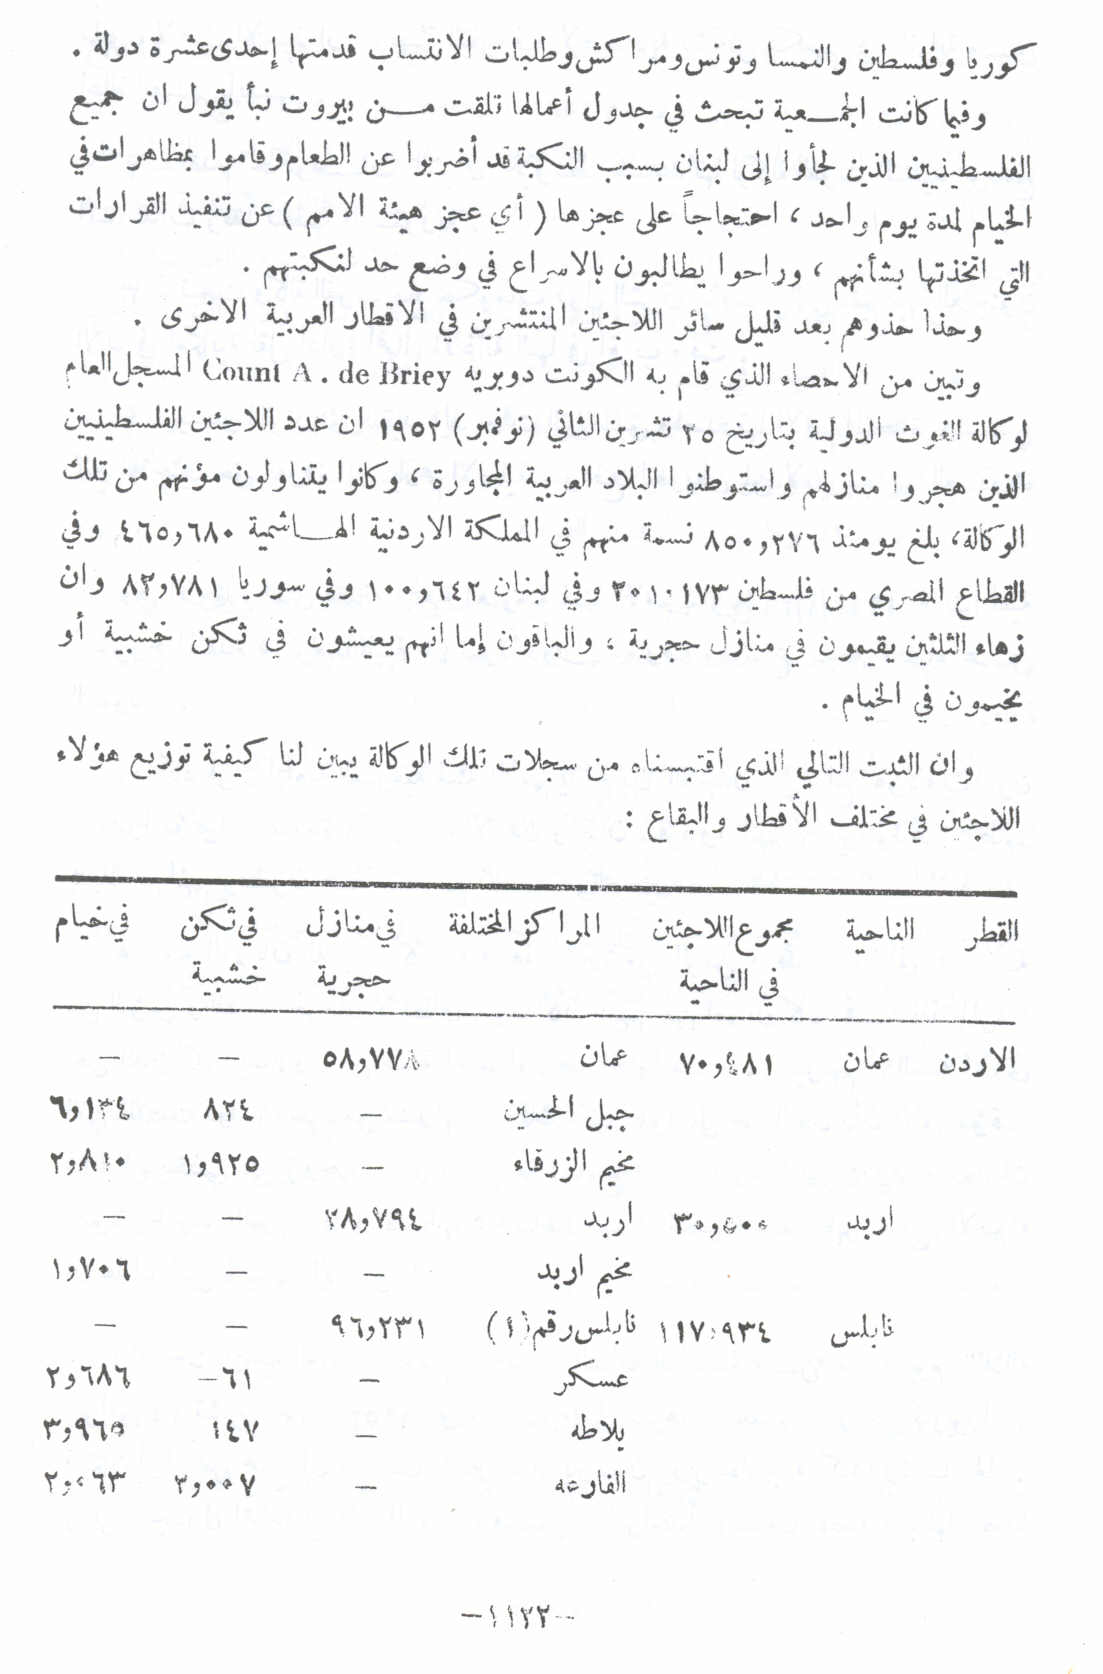 كوريا وفلسطين والنمسا وتونس ومراكش وطلبات الانتساب قدمتها إحدى عشرة دولة .
وفيما كانت الجمعية تبحث في جدول أعمالها تلقت من بيروت نبأ يقول ان جميع
الفلسطينيين الذين لجأوا إلى لبنان بسبب النكبة قد أضربوا عن الطعام وقاموا بمظاهرات في
الخيام لمدة يوم واحد ، احتجاجاً على عجزها ( أي عجز هيئة الامم ) عن تنفيذ القرارات
التي اتخذتها بشأنهم ، وراحوا يطالبون بالاسراع في وضع حد لنكبتهم .
وحذا حذوهم بعد قليل سائر اللاجئين المنتشرين في الاقطار العربية الاخرى .
وتبين من الاحصاء الذي قام به الكونت دوبريه Count A. de Briey المسجل العام
لوكالة الغوث الدولية بتاريخ ٢٥ تشرين الثاني (نوفمبر) ١٩٥٢ ان عدد اللاجئين الفلسطينيين
الذين هجروا منازلهم واستوطنوا البلاد العربية المجاورة ، وكانوا يتناولون مؤنهم من تلك
الوكالة، بلغ يومئذ ٨٥٠,٢٧٦ نسمة منهم في المملكة الاردنية الهاشمية ٤٦٥,٦٨٠ وفي
القطاع المصري من فلسطين ٢٠١٠١٧٣ وفي لبنان ١٠٠,٦٤٢ وفي سوريا ٨٢,٧٨١ وان
زهاء الثلثين يقيمون في منازل حجرية ، والباقون إما انهم يعيشون في ثكن خشبية أو
يخيمون في الخيام .
وان الثبت التالي الذي اقتبسناه من سجلات تلك الوكالة يبين لنا كيفية توزيع هؤلاء
اللاجئين في مختلف الأقطار والبقاع :
القطر الناحية مجموع اللاجئين المراكز المختلفة في منازل في ثكن في خيام
في الناحية حجرية خشبية
الاردن عمان ٧٠,٤٨١ عمان ٥٨,٧٧٨ — —
جبل الحسين — ٨٢٤ ٦,١٣٤
مخيم الزرقاء — ١,٩٢٥ ٢,٨١٠
اربد ٣٠,٥٠٠ اربد ٢٨,٧٩٤ — —
مخيم اربد — — ١,٧٠٦
نابلس ١١٧,٩٣٤ نابلس رقم (١) ٩٦,٢٣١ — —
عسكر — ٦١– ٢,٦٨٦
بلاطه — ١٤٧ ٣,٩٦٥
الفارعه — ٣,٠٠٧ ٢,٠٦٣
—١١٢٢—